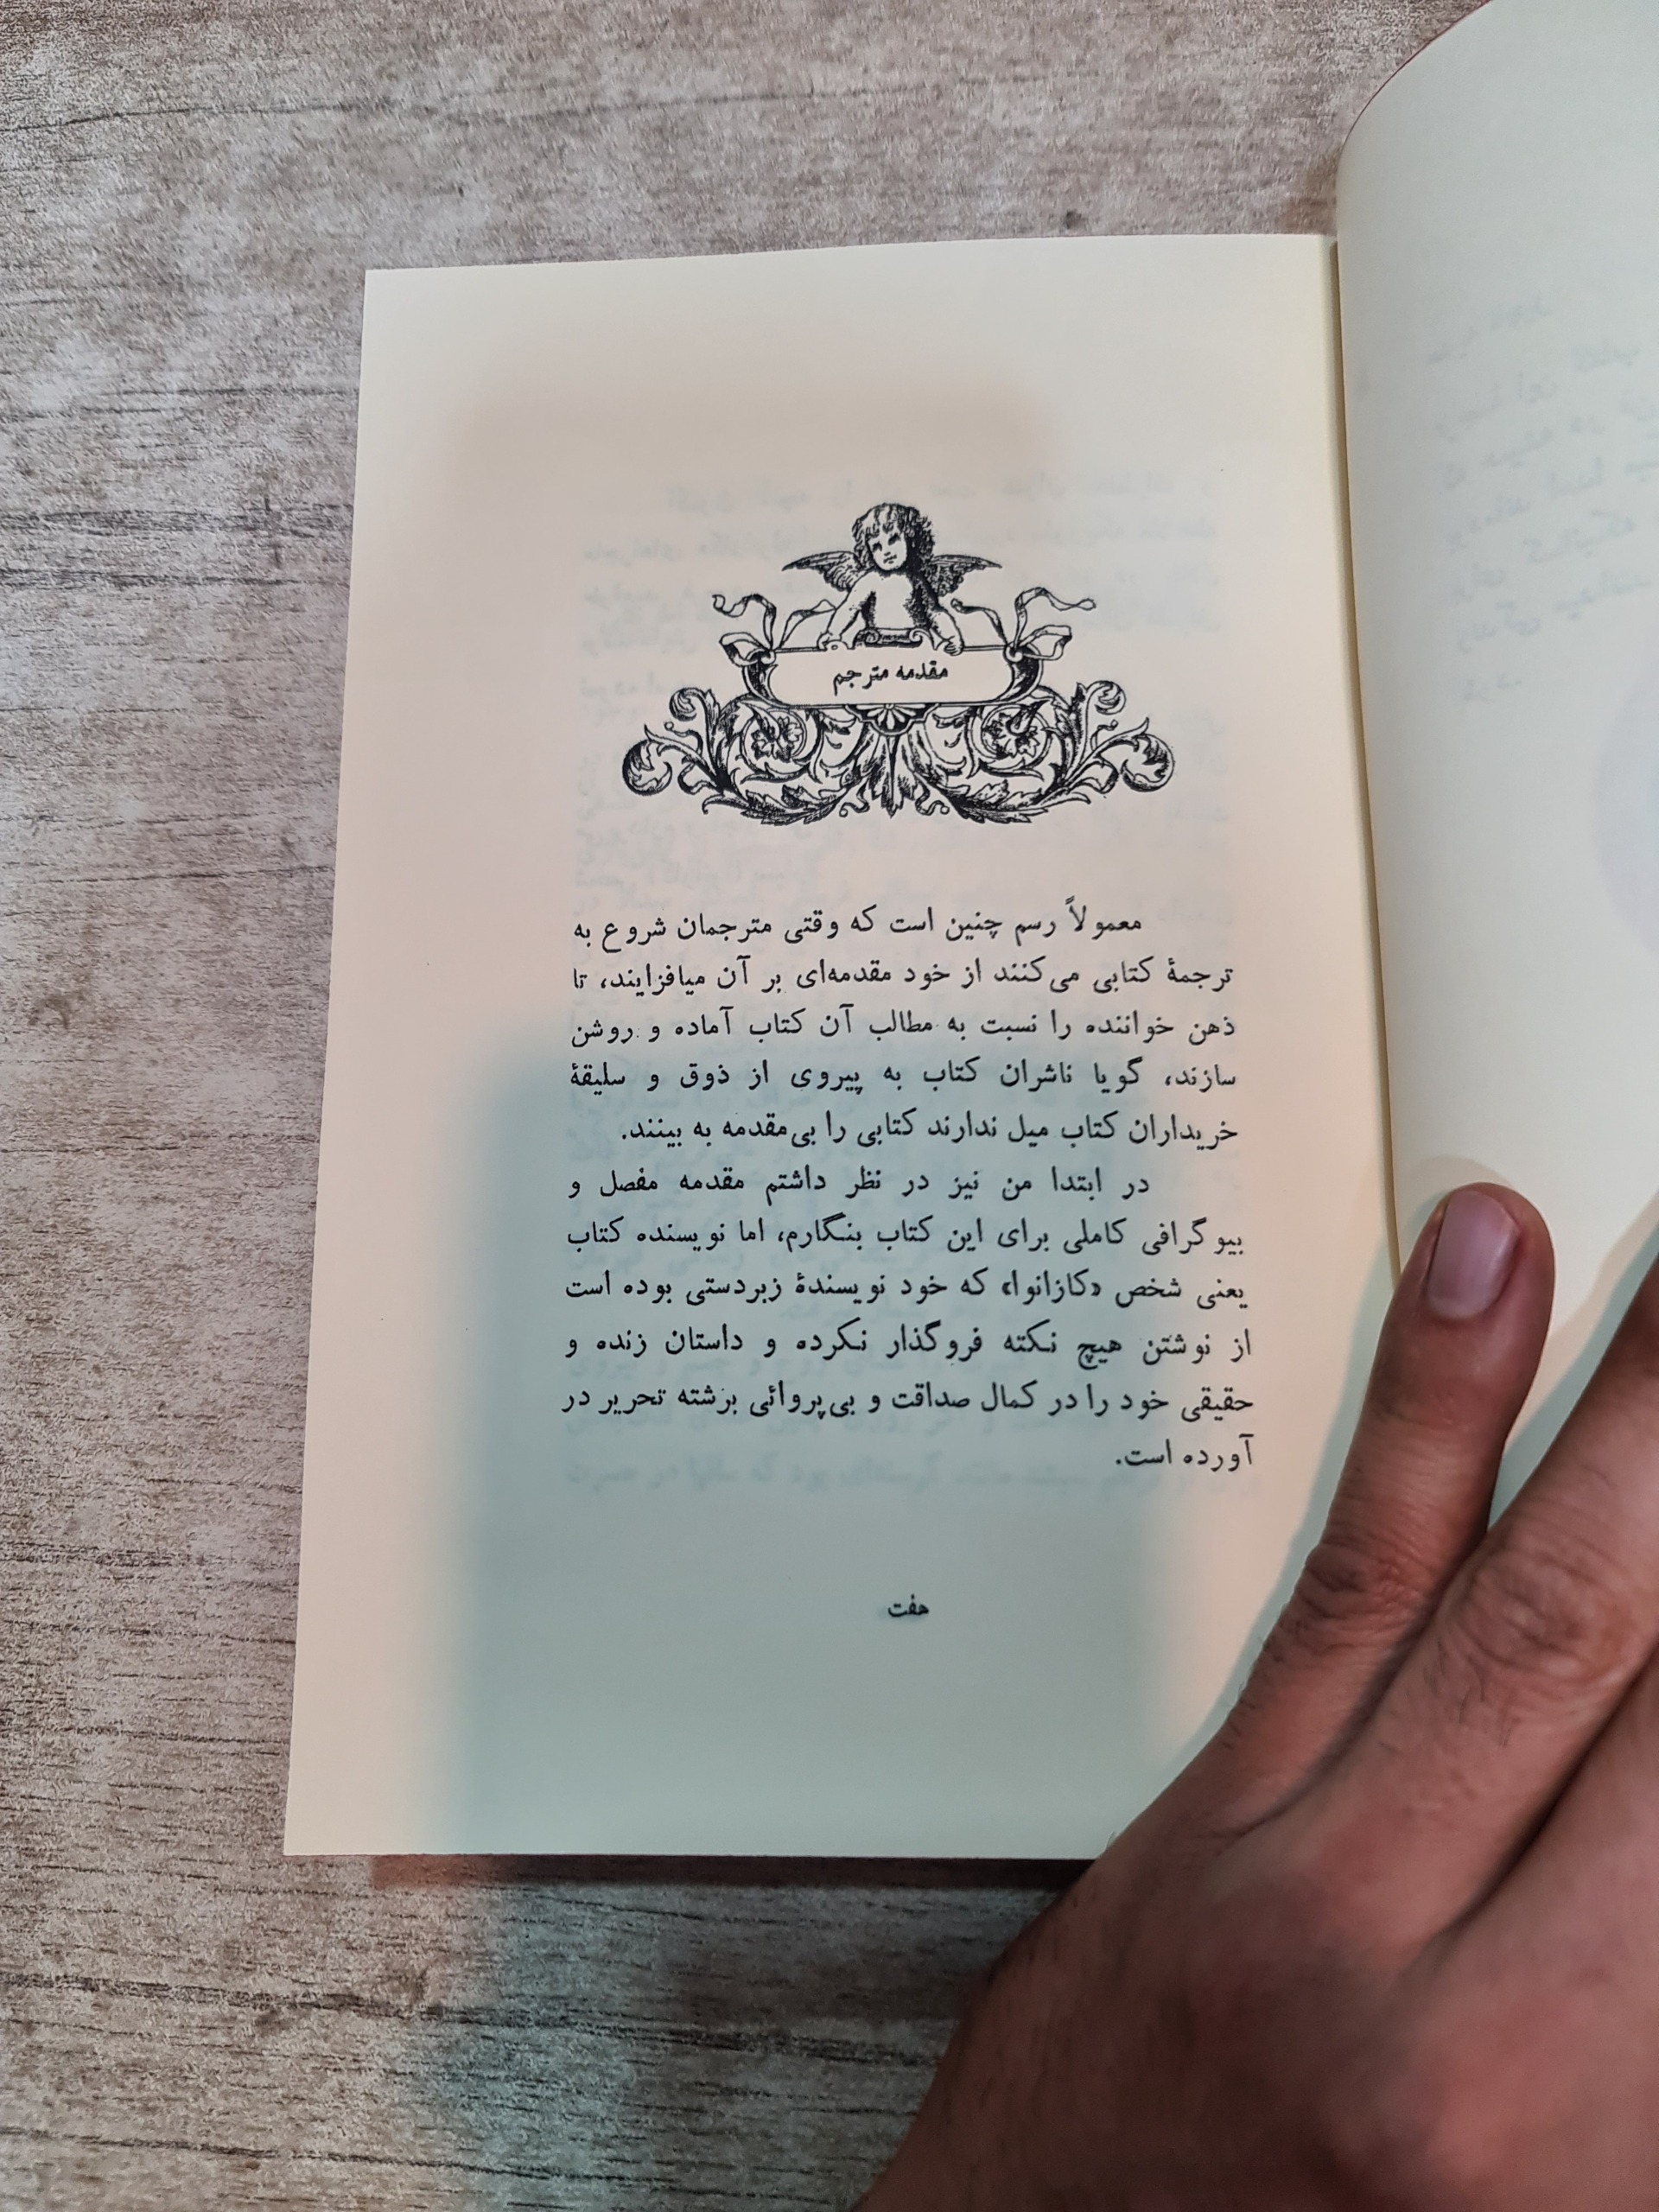 مقدمه مترجم
معمولاً رسم چنین است که وقتی مترجمان شروع به
ترجمهٔ کتابی می‌کنند از خود مقدمه‌ای بر آن میافزایند، تا
ذهن خواننده را نسبت به مطالب آن کتاب آماده و روشن
سازند، گویا ناشران کتاب به پیروی از ذوق و سلیقهٔ
خریداران کتاب میل ندارند کتابی را بی‌مقدمه به بینند.
در ابتدا من نیز در نظر داشتم مقدمه مفصل و
بیوگرافی کاملی برای این کتاب بنگارم، اما نویسنده کتاب
یعنی شخص «کازانوا» که خود نویسندهٔ زبردستی بوده است
از نوشتن هیچ نکته فروگذار نکرده و داستان زنده و
حقیقی خود را در کمال صداقت و بی‌پروائی برشته تحریر در
آورده است.
هفت